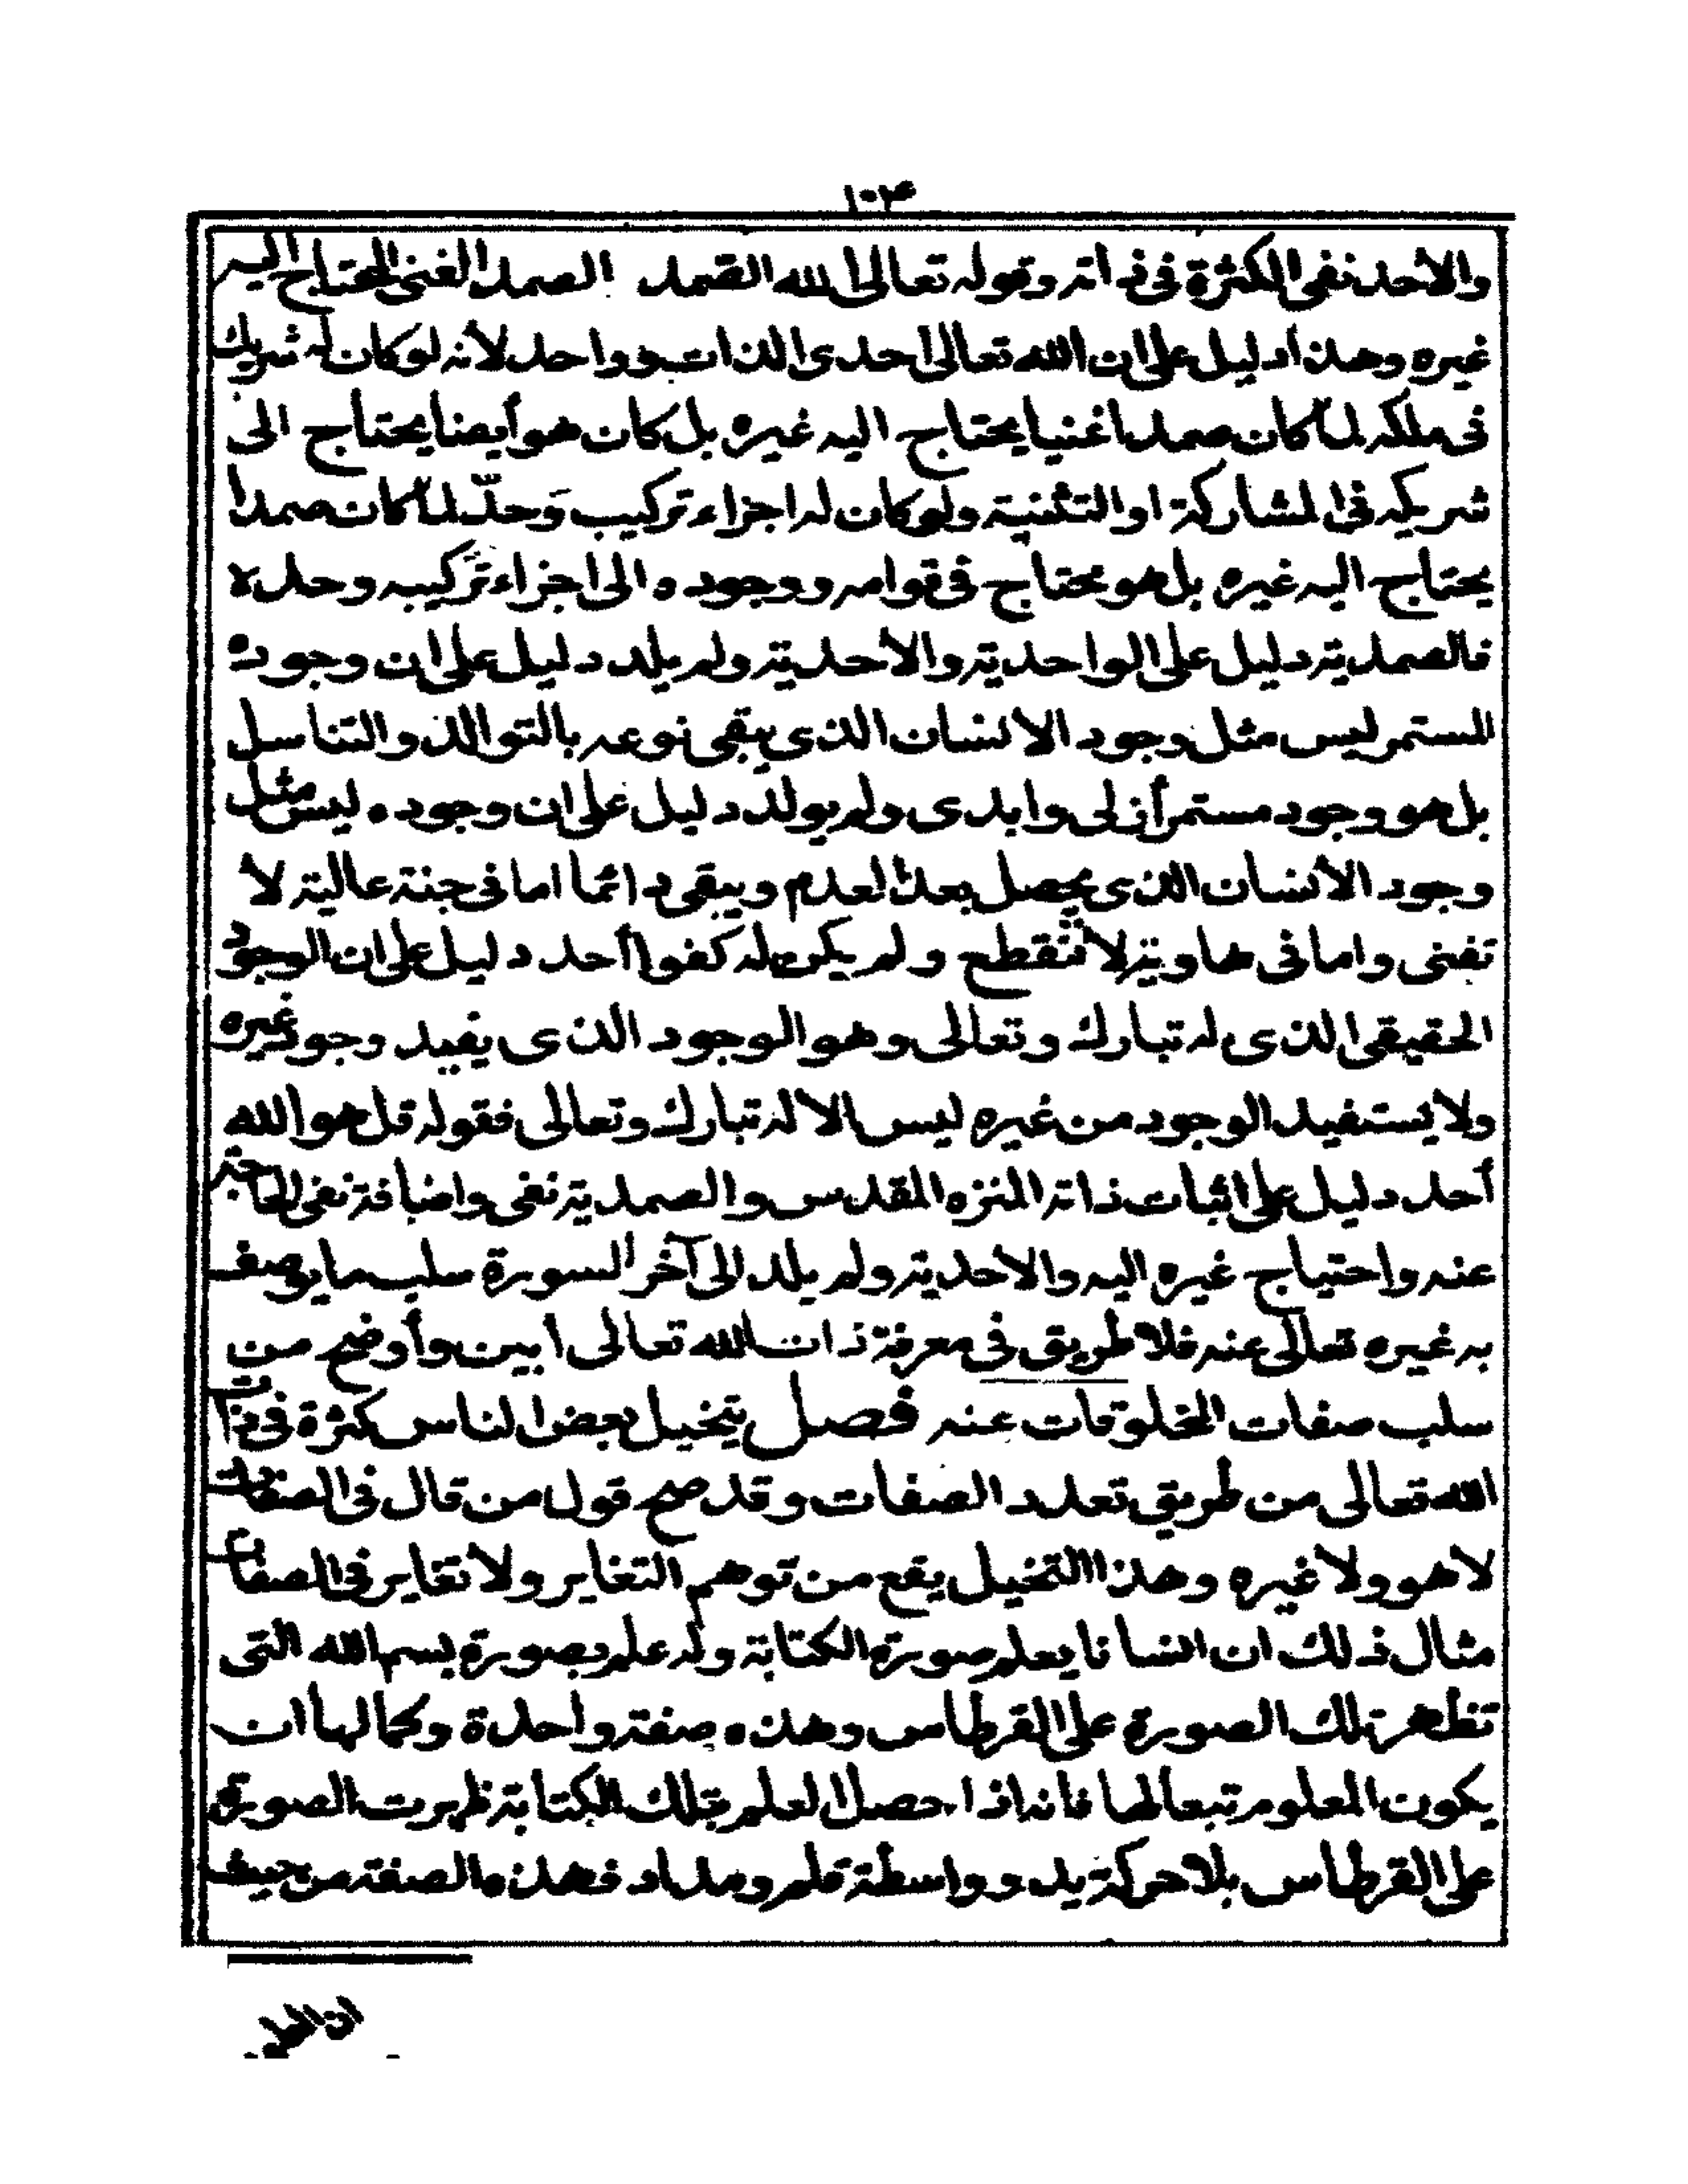 ١٠٣
والأحد نفى الكثرة فى ذاته وقوله تعالى الله الصمد الصمد الغنى المحتاج اليه
غيره وهذا دليل على ان الله تعالى احدى الذات وواحد لأنه لو كان له شريك
فى ملكه لما كان صمدا غنيا يحتاج اليه غيره بل كان هو أيضا يحتاج الى
شريكه فى المشاركة او التثنية ولو كان له اجزاء تركيب وحدّ لما كان صمدا
يحتاج اليه غيره بل هو محتاج فى قوامه ووجوده الى اجزاء تركيبه وحده
فالصمدية دليل على الواحدية والأحدية ولم يلد دليل على ان وجوده
المستمر ليس مثل وجود الانسان الذى يبقى نوعه بالتوالد والتناسل
بل هو وجود مستمر أزلى وابدى ولم يولد دليل على ان وجوده ليس مثل
وجود الأنسان الذى يحصل بعد العدم ويبقى دائما اما فى جنة عالية لا
تفنى واما فى هاوية لا تنقطع ولم يكن له كفوا أحد دليل على ان الوجود
الحقيقى الذى له تبارك وتعالى وهو الوجود الذى يفيد وجود غيره
ولا يستفيد الوجود من غيره ليس الا له تبارك وتعالى فقوله قل هو الله
أحد دليل على اثبات ذاته المنزه المقدس والصمدية نفى واضافة نفى الحاجة
عنه واحتياج غيره اليه والأحدية ولم يلد الى آخر السورة سلب ما يوصف
به غيره تعالى عنه فلا طريق فى معرفة ذات الله تعالى أبين وأوضح من
سلب صفات المخلوقات عنه فصل يتخيل بعض الناس كثرة فى ذات
الله تعالى من طريق تعدد الصفات وقد صح قول من قال فى الصفات
لا هو ولا غيره وهذا التخيل يقع من توهم التغاير ولا تغاير فى الصفات
مثال ذلك ان انسانا يعلم صورة الكتابة وله علم بصورة بسم الله التى
تظهر تلك الصورة على القرطاس وهذه صفة واحدة وكمالها ان
يكون المعلوم تبعا لها فانه اذا حصل العلم بتلك الكتابة ظهرت الصورة
على القرطاس بلا حركة يد وواسطة قلم ومداد فهذه الصفة من حيث